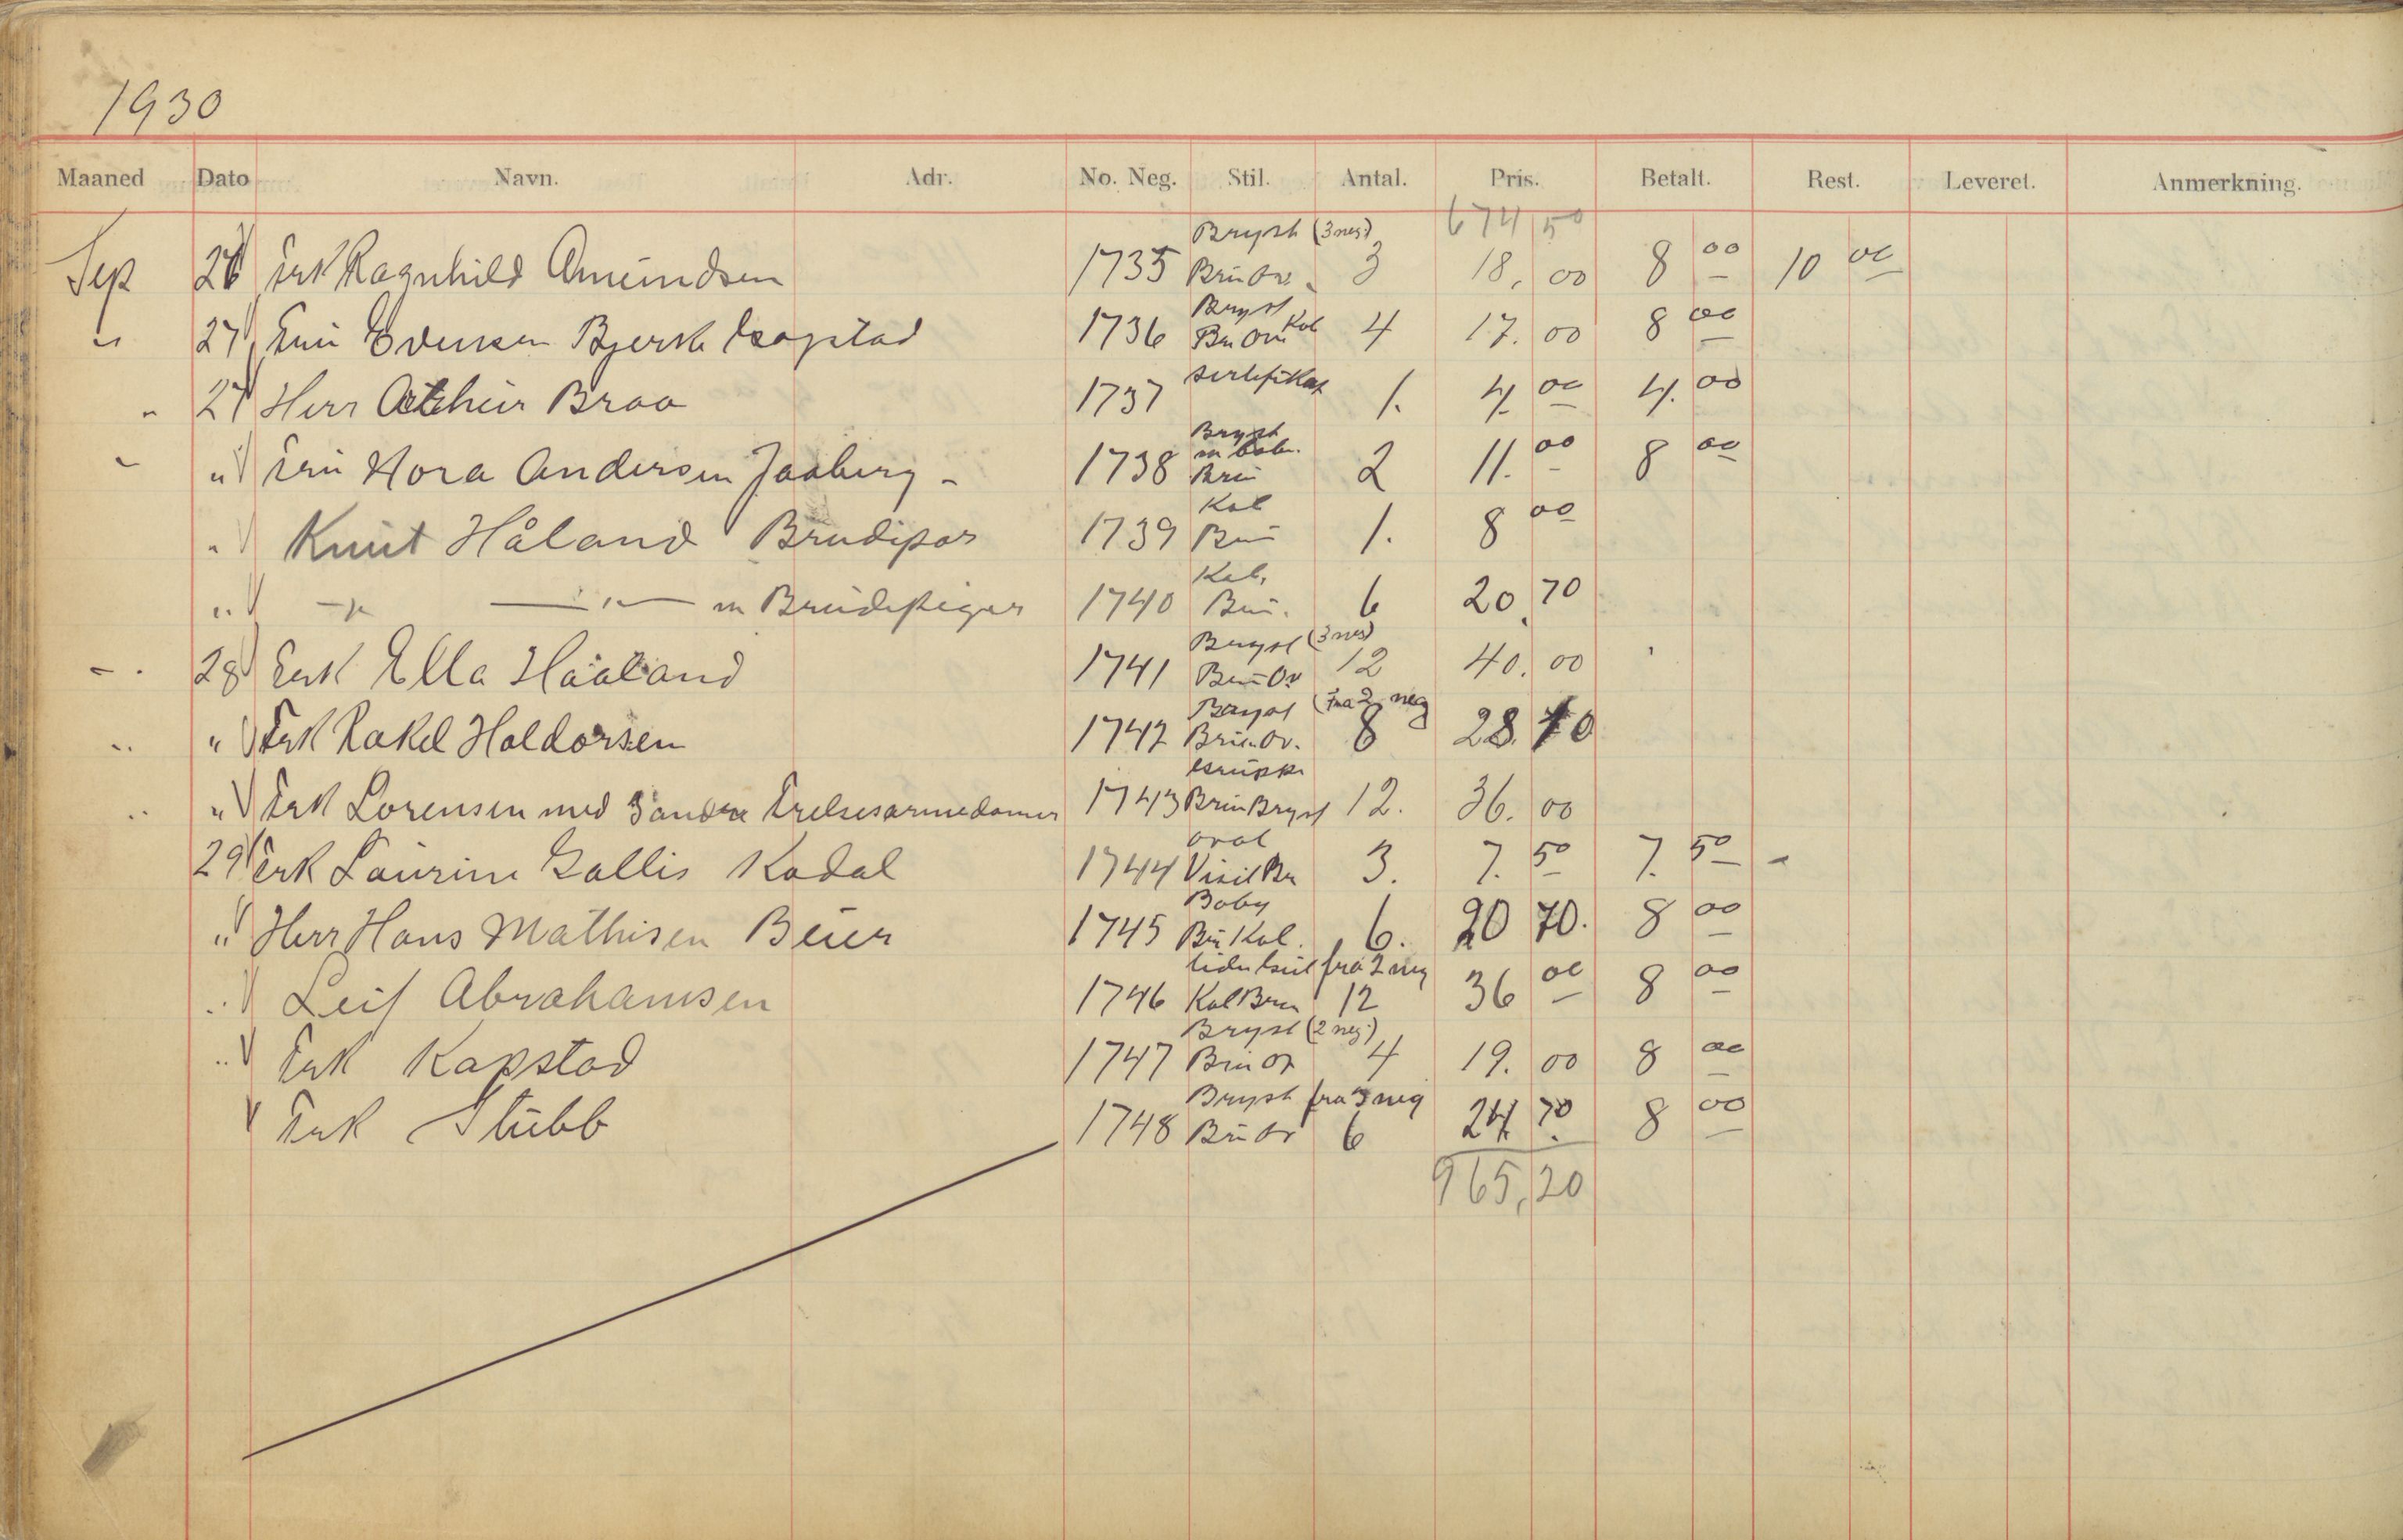 1930
Maaned Dato Navn. Adr. No. Neg. Stil. Antal. Pris. Betalt. Rest. Leveret. Anmerkning.
674 50
Bryst (3 neg)
Sep 26 Frk Ragnhild Amundsen 1735 Brun Ov. 3 18,00 8 00 10 00
Bryst
" 27 Fru Evensen Bjerk 1736 Kol 4 17.00 8 00
sertifikat
" 27 Herr Arthur Braa 1737 1. 4. 00 4. 00
Bryst
" " Fru Nora Andersen Jaaberg - 1738 Brun 2 11. 00 8 00
Kol
" Knut Håland Brudepar 1739 Brun 1. 8 00
Kol.
" —"— m Brudepiger 1740 Brun. 6 20,70
Bryst (3 neg)
" 28 Frk Ella Håaland 1741 Brun Ov 12 40.00
Bryst (fra 2 neg
" " Frk Rakel Haldorsen 1742 Brun Ov. 8 28.70
Gruppe
" " Frk Lorensen med 3 andre Frelsesarmedamer 1743 Brun Bryst 12. 36.00
oval
29 Frk Laurine Gallis Kodal 1744 Visit Br 3. 7. 50 7. 50 -
Baby
" Herr Hans Mathisen Beier 1745 Br Kol. 6. 20 70. 8 00
fra 2 neg
" Leif Abrahamsen 1746 Kol Brun 12 36 00 8 00
Bryst (2 neg.)
" Frk Kapstad 1747 Brun Ov 4 19.00 8 00
Bryst fra 3 neg
Frk Stubb 1748 Br Ov 6 24 70. 8 00
965,20